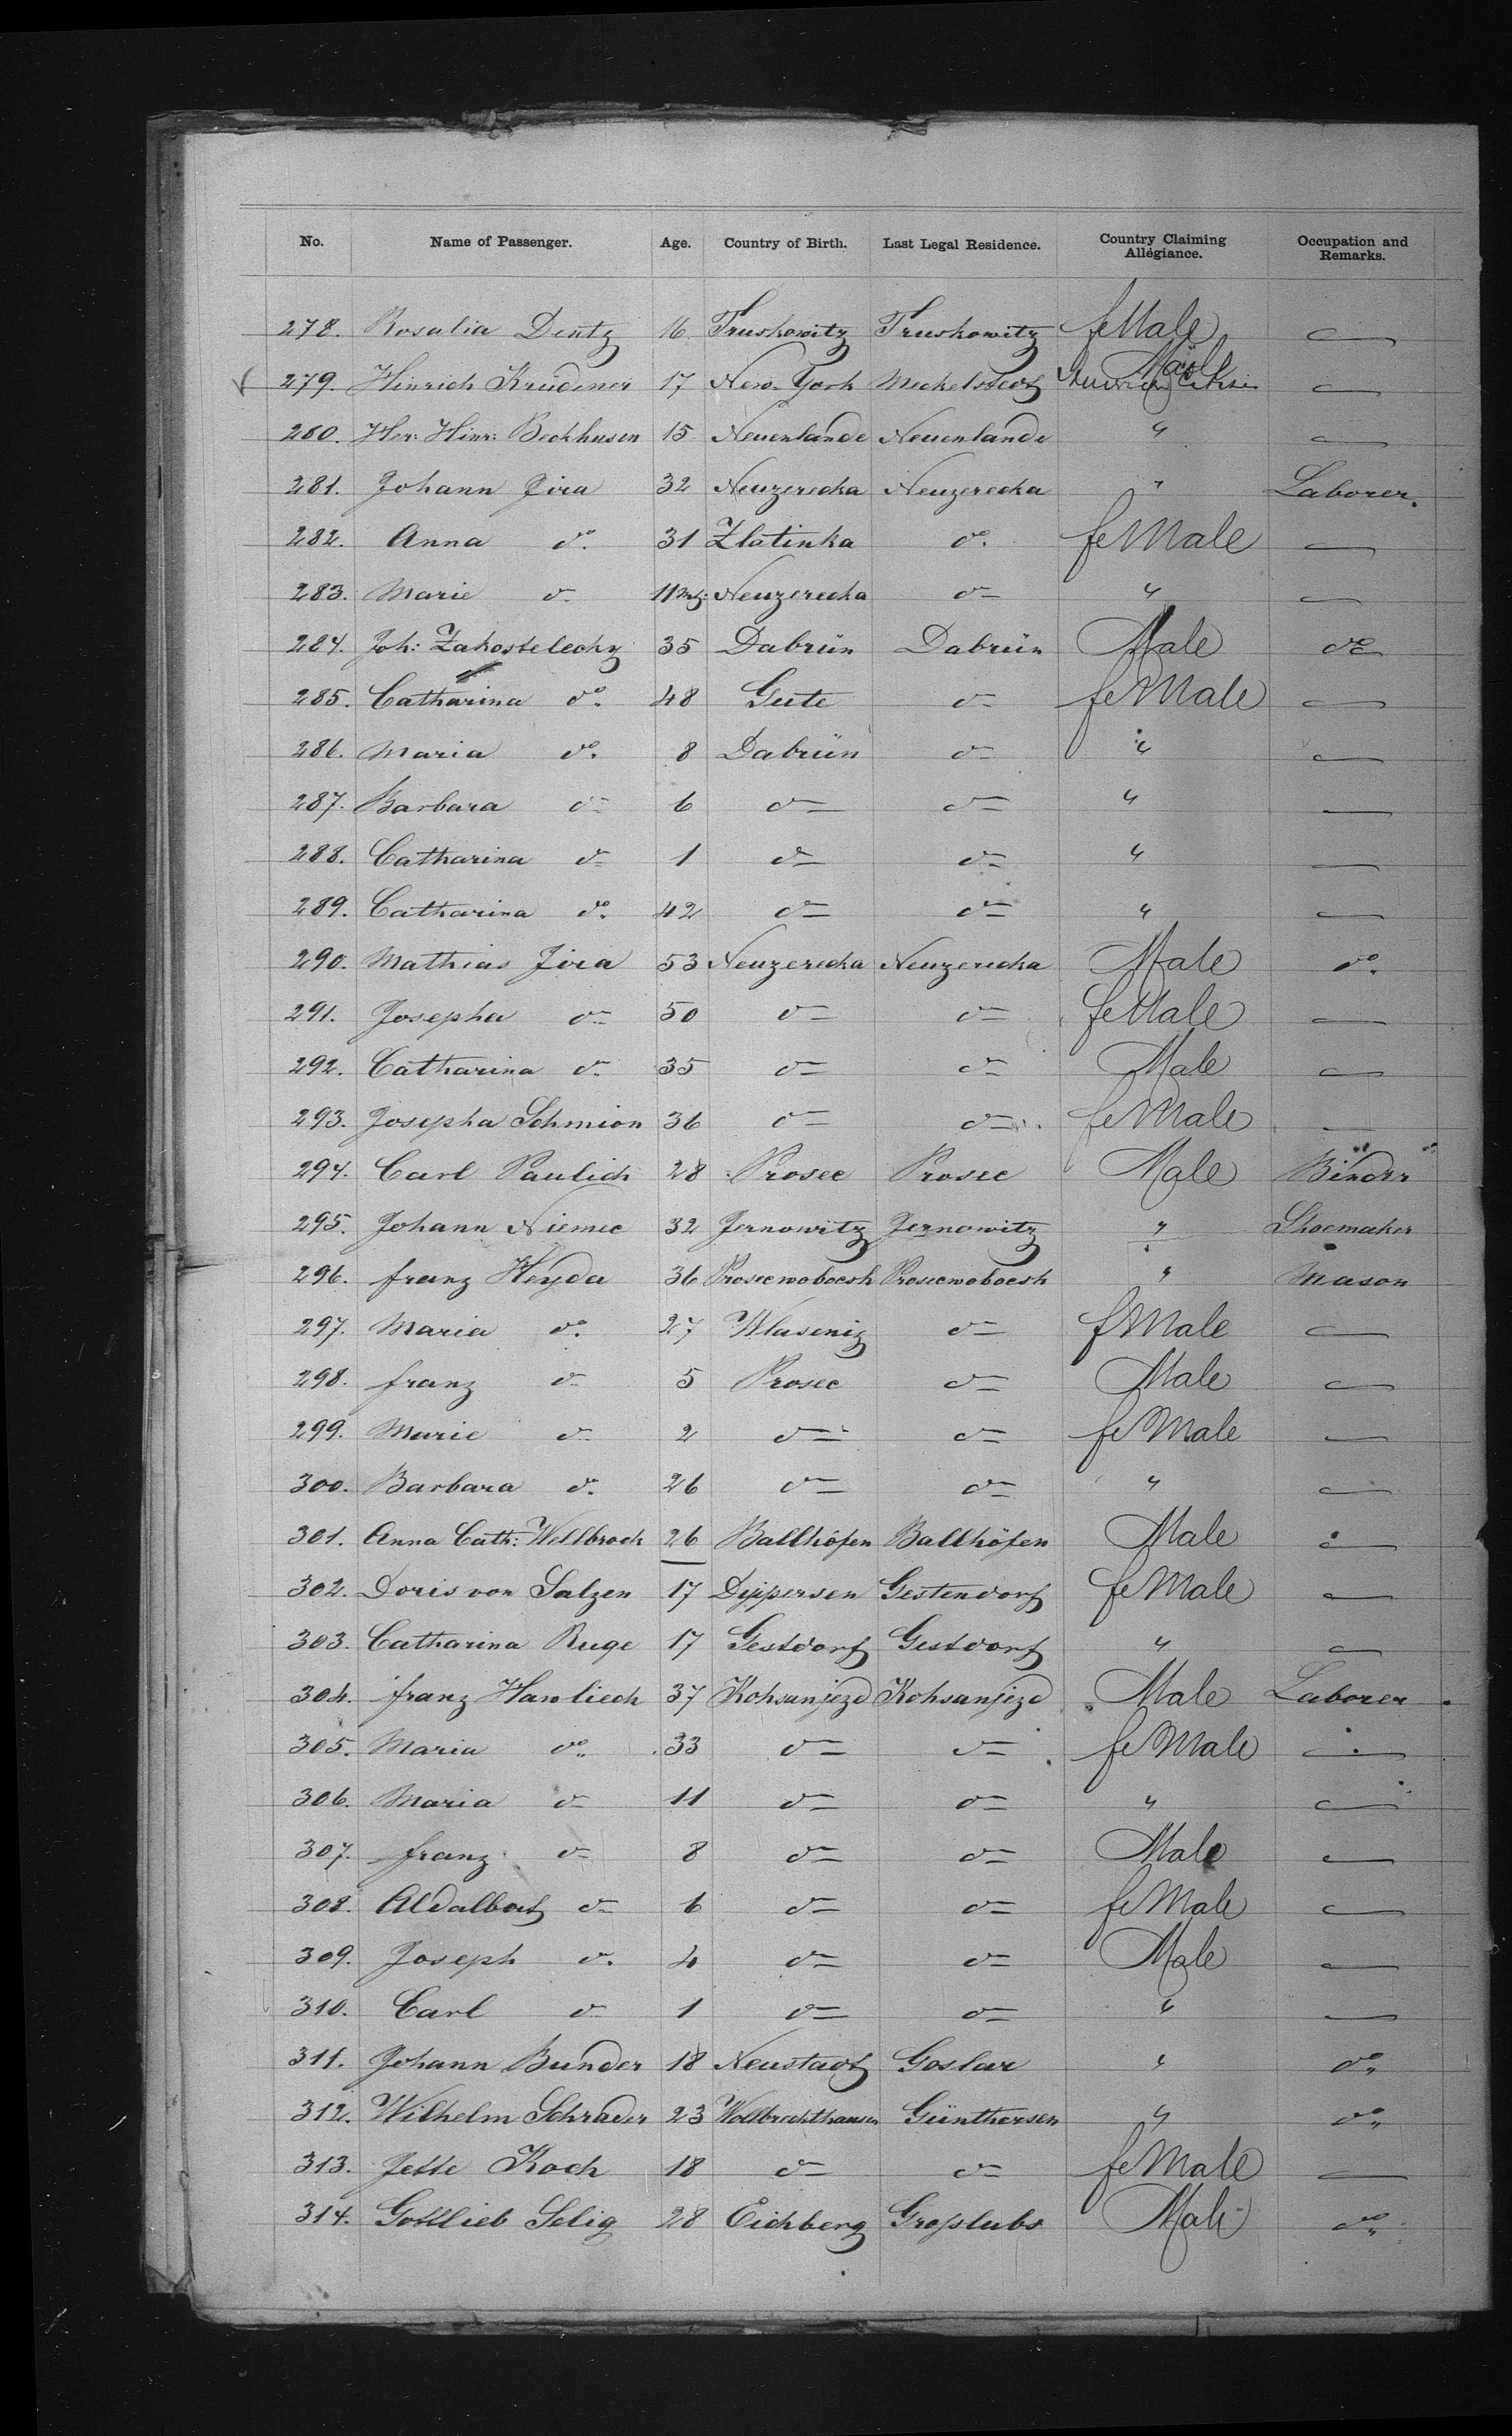 No. Name of Passenger. Age. Country of Birth. Last Legal Residence. Country Claiming Allegiance. Occupation and Remarks.
278. Rosalia Dentz 16 Truskowitz Truskowitz feMale —
279. Hinrich Krüdener 17 New-York Meckelstedt Male —
280. Her: Hinr: Beckhusen 15 Neuenlande Neuenlande " —
281. Johann Jira 32 Neuzerecka Neuzerecka " Laborer.
282. Anna do. 31 Zlatinka do. feMale —
283. Marie do 11 Neuzerecka do " —
284. Joh: Zakostelecky 35 Dabrün Dabrün Male do
285. Catharina do. 48 Geite do feMale —
286. Maria do. 8 Dabrün do " —
287. Barbara do 6 do do " —
288. Catharina do 1 do do " —
289. Catharina do. 42 do do " —
290. Mathias Jira 53 Neuzerecka Neuzerecka Male do.
291. Josepha do 50 do do feMale —
292. Catharina do 35 do do Male —
293. Josepha Schmion 36 do do feMale —
294. Carl Paulich 28 Prosec Prosec Male Binder
295. Johann Niemec 32 Jernowitz Jernowitz " Shoemaker
296. franz Heyda 36 Prosecwoboesh Prosecwoboesh " Mason
297. Maria do. 27 Wlaseniz do fMale —
298. franz do 5 Prosec do Male —
299. Marie do 2 do do feMale —
300. Barbara do. 26 do do " —
301. Anna Cath: Wellbrock 26 Ballhöfen Ballhöfen Male —
302. Doris von Salzen 17 Dippersen Gestendorf feMale —
303. Catharina Ruge 17 Gestdorf Gestdorf " —
304. franz Hawliech 37 Kohsanjezd Kohsanjezd Male Laborer
305. Maria do. 33 do do feMale —
306. Maria do 11 do do " —
307. franz do 8 do do Male —
308. Aldalbert do 6 do do feMale —
309. Joseph do. 4 do do Male —
310. Carl do 1 do do " —
311. Johann Bunder 18 Neustadt Goslar " do.
312. Wilhelm Schrader 23 Wollbrechthausen Güntersen " do.
313. Jette Koch 18 do do feMale —
314. Gottlieb Selig 28 Eichberg Groslubs Male do.